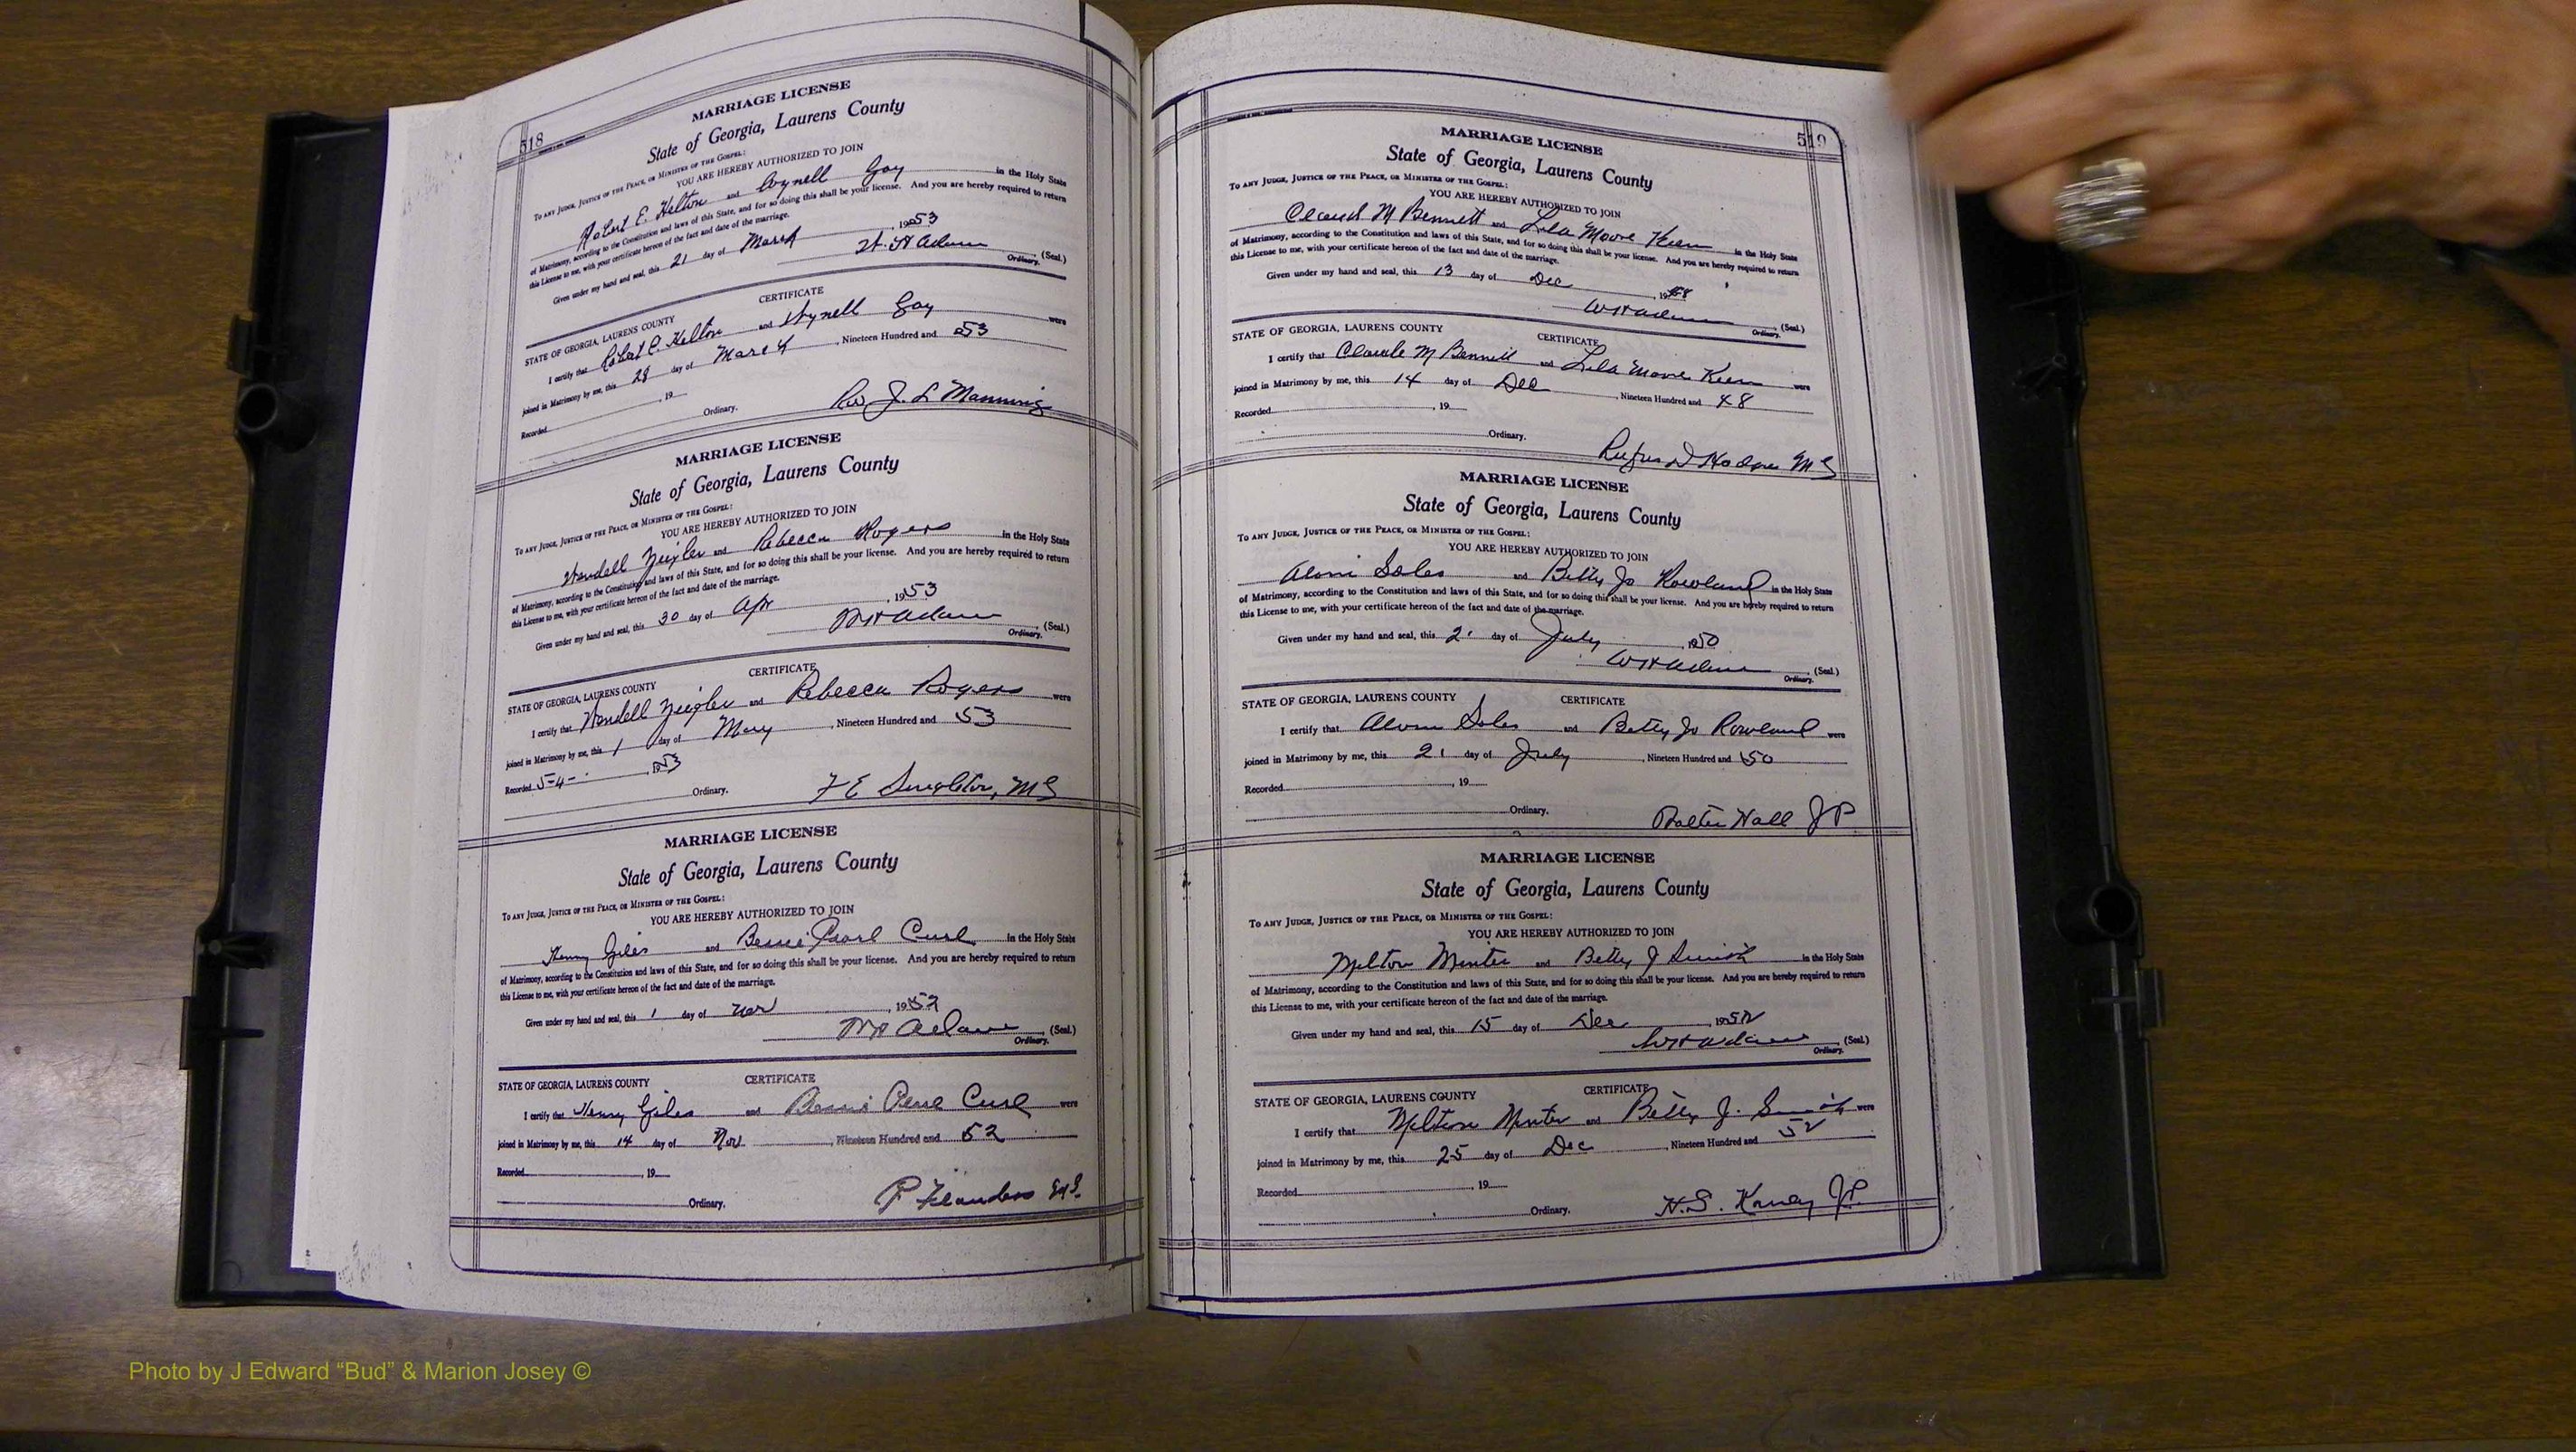 518
MARRIAGE LICENSE
State of Georgia, Laurens County
To any Judge, Justice of the Peace, or Minister of the Gospel:
YOU ARE HEREBY AUTHORIZED TO JOIN
Robert E. Helton and Wynell Gay in the Holy State
of Matrimony, according to the Constitution and laws of this State, and for so doing this shall be your license. And you are hereby required to return
this License to me, with your certificate hereon of the fact and date of the marriage.
Given under my hand and seal, this 21 day of March, 1953
W. H. Adams (Seal.)
Ordinary.
CERTIFICATE
STATE OF GEORGIA, LAURENS COUNTY
I certify that Robert E. Helton and Wynell Gay were
joined in Matrimony by me, this 28 day of March, Nineteen Hundred and 53
Recorded, 19
Ordinary.
Rev J. L Manning
MARRIAGE LICENSE
State of Georgia, Laurens County
To any Judge, Justice of the Peace, or Minister of the Gospel:
YOU ARE HEREBY AUTHORIZED TO JOIN
Wendell Zeigler and Rebecca Rogers in the Holy State
of Matrimony, according to the Constitution and laws of this State, and for so doing this shall be your license. And you are hereby required to return
this License to me, with your certificate hereon of the fact and date of the marriage.
Given under my hand and seal, this 30 day of Apr, 1953
W H Adams (Seal.)
Ordinary.
CERTIFICATE
STATE OF GEORGIA, LAURENS COUNTY
I certify that Wendell Zeigler and Rebecca Rogers were
joined in Matrimony by me, this 1 day of May, Nineteen Hundred and 53
Recorded 5-4-, 1953
Ordinary.
F E Singleton, MG
MARRIAGE LICENSE
State of Georgia, Laurens County
To any Judge, Justice of the Peace, or Minister of the Gospel:
YOU ARE HEREBY AUTHORIZED TO JOIN
Henry Giles and Bessie Pearl Curl in the Holy State
of Matrimony, according to the Constitution and laws of this State, and for so doing this shall be your license. And you are hereby required to return
this License to me, with your certificate hereon of the fact and date of the marriage.
Given under my hand and seal, this 1 day of Nov, 1952
W H Adams (Seal.)
Ordinary.
CERTIFICATE
STATE OF GEORGIA, LAURENS COUNTY
I certify that Henry Giles and Curl were
joined in Matrimony by me, this 14 day of Nov, Nineteen Hundred and 52
Recorded, 19
Ordinary.
P Flanders
519
MARRIAGE LICENSE
State of Georgia, Laurens County
To any Judge, Justice of the Peace, or Minister of the Gospel:
YOU ARE HEREBY AUTHORIZED TO JOIN
Claud M Bennett and Lila Moore Keen in the Holy State
of Matrimony, according to the Constitution and laws of this State, and for so doing this shall be your license. And you are hereby required to return
this License to me, with your certificate hereon of the fact and date of the marriage.
Given under my hand and seal, this 13 day of Dec, 1948
W H Adams (Seal.)
Ordinary.
STATE OF GEORGIA, LAURENS COUNTY
CERTIFICATE
I certify that Claude M Bennett and Lila Moore Keen were
joined in Matrimony by me, this 14 day of Dec, Nineteen Hundred and 48
Recorded, 19
Ordinary.
Rufus D Hodges MG
MARRIAGE LICENSE
State of Georgia, Laurens County
To any Judge, Justice of the Peace, or Minister of the Gospel:
YOU ARE HEREBY AUTHORIZED TO JOIN
Soles and Betty Jo Rowland in the Holy State
of Matrimony, according to the Constitution and laws of this State, and for so doing this shall be your license. And you are hereby required to return
this License to me, with your certificate hereon of the fact and date of the marriage.
Given under my hand and seal, this 21 day of July, 1950
W H Adams (Seal.)
Ordinary.
STATE OF GEORGIA, LAURENS COUNTY
CERTIFICATE
I certify that Soles and Betty Jo Rowland were
joined in Matrimony by me, this 21 day of July, Nineteen Hundred and 50
Recorded, 19
Ordinary.
Walter Hall JP
MARRIAGE LICENSE
State of Georgia, Laurens County
To any Judge, Justice of the Peace, or Minister of the Gospel:
YOU ARE HEREBY AUTHORIZED TO JOIN
Melton Minter and Betty J Smith in the Holy State
of Matrimony, according to the Constitution and laws of this State, and for so doing this shall be your license. And you are hereby required to return
this License to me, with your certificate hereon of the fact and date of the marriage.
Given under my hand and seal, this 15 day of Dec, 1952
W H Adams (Seal.)
Ordinary.
CERTIFICATE
STATE OF GEORGIA, LAURENS COUNTY
I certify that Melton Minter and Betty J. Smith were
joined in Matrimony by me, this 25 day of Dec, Nineteen Hundred and 52
Recorded, 19
Ordinary.
H. S. JP.
Photo by J Edward “Bud” & Marion Josey ©